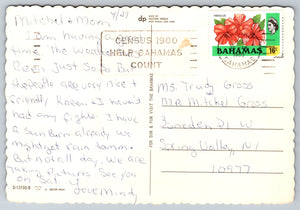 4/27
Mitchel + Mom,
I am having a
time. The weather
Great. Just So-So But
the people are very nice +
friendly. Karen + I haven't
had any fights. I have
a Sun Burn already we
might get rain tomm.
But not all day. We are
taking pictures. See you
on Sat.
Love Mindy
dp
CENSUS 1980
HELP BAHAMAS
COUNT
HIBISCUS
BAHAMAS 16c
BAHAMAS
Ms. Trudy Gross
Mitchel Gross
Sweden
Spring Valley, NY
10977
FOR SUN & FUN VISIT THE BAHAMAS